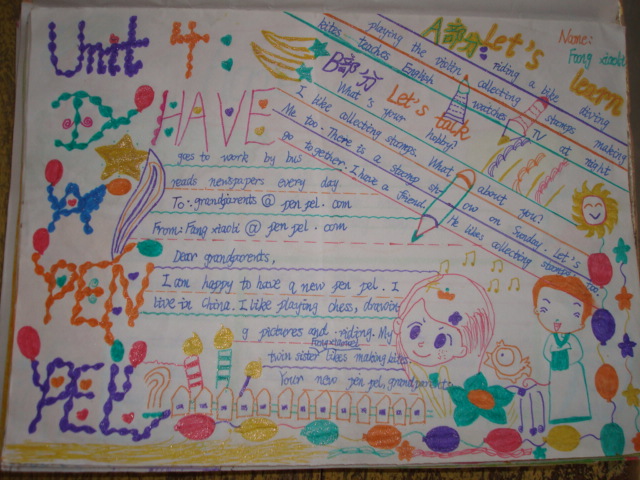 Unit 4:
I HAVE
A
PEN
PEL
A部分: Let's learn
Name:
Fang xiaobi
playing the violin riding a bike diving
kites teaches English collecting stamps making
watches TV at night
B部分 Let's talk
What's your hobby?
I like collecting stamps. What about you?
Me too. There is a stamp show on Sunday. Let's
go together. I have a friend. He likes collecting stamps, too.
goes to work by bus
reads newspapers every day
To: grandparents @ pen pel . com
From: Fang xiaobi @ pen pel . com
Dear grandparents,
I am happy to have a new pen pel. I
live in China. I like playing chess, drawin
g pictures and riding. My
twin sister likes making kites.
Your new pen pel, grandparents